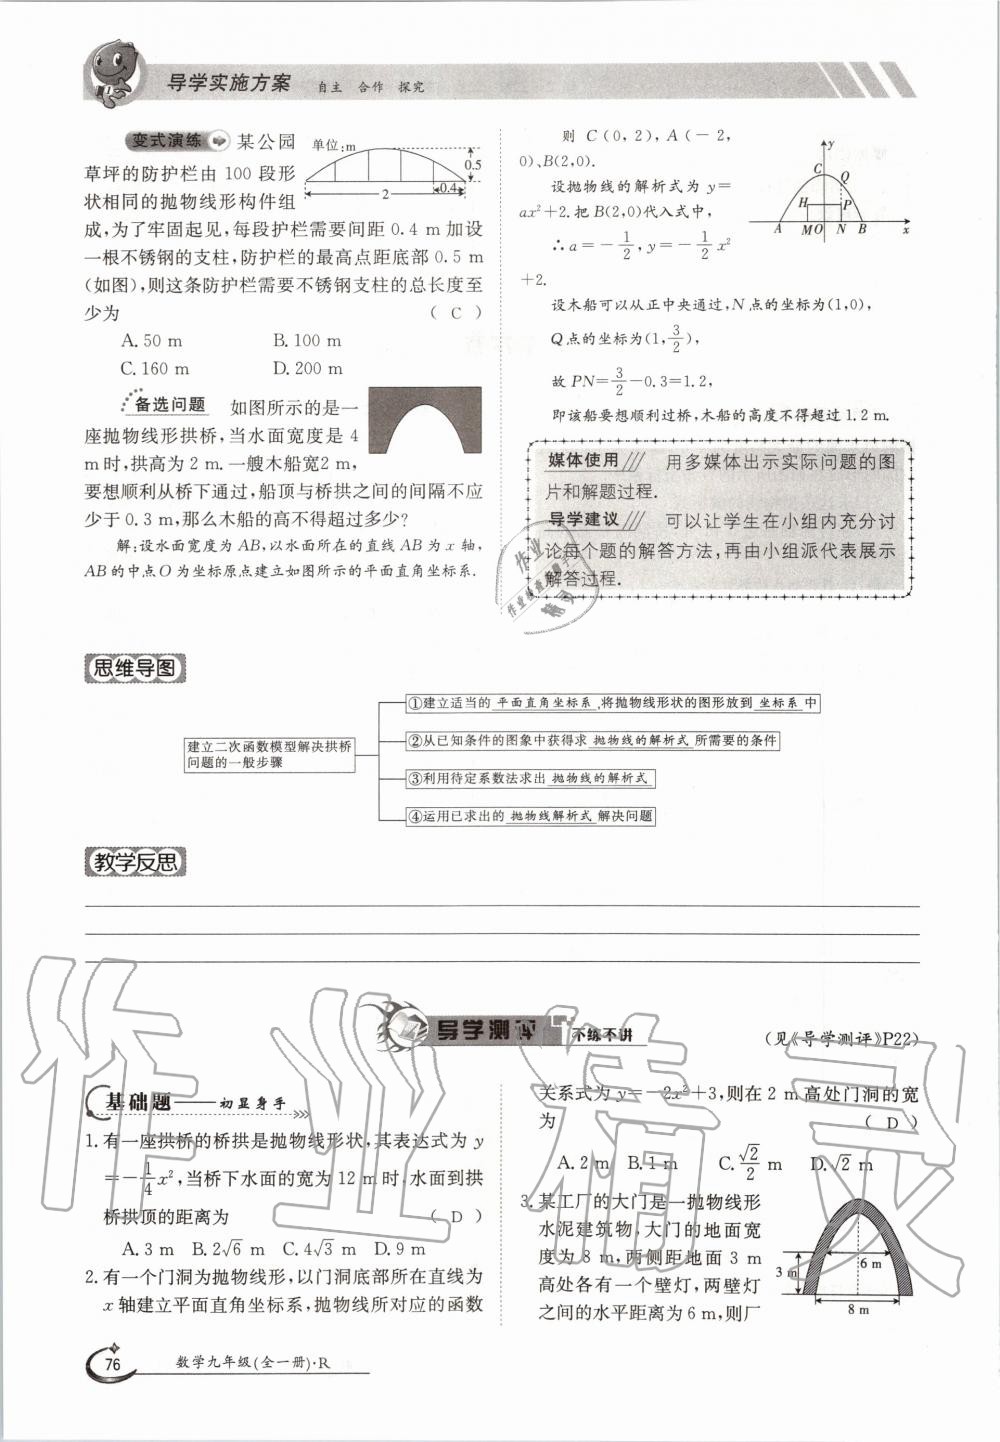 导学实施方案 自主 合作 探究
变式演练 某公园
草坪的防护栏由 100 段形
状相同的抛物线形构件组
成,为了牢固起见,每段护栏需要间距 0.4 m 加设
一根不锈钢的支柱,防护栏的最高点距底部 0.5 m
(如图),则这条防护栏需要不锈钢支柱的总长度至
少为 ( C )
单位:m
0.5
0.4
2
A. 50 m B. 100 m
C. 160 m D. 200 m
备选问题 如图所示的是一
座抛物线形拱桥,当水面宽度是 4
m时,拱高为 2 m.一艘木船宽2 m,
要想顺利从桥下通过,船顶与桥拱之间的间隔不应
少于 0.3 m,那么木船的高不得超过多少?
解:设水面宽度为 AB,以水面所在的直线 AB 为 x 轴,
AB 的中点O 为坐标原点建立如图所示的平面直角坐标系.
则 C(0,2),A(-2,
0)、B(2,0).
设抛物线的解析式为 y=
ax²+2.把 B(2,0)代入式中,
∴a=-1/2,y=-1/2x²
+2.
y
C
Q
H
P
A MO N B x
设木船可以从正中央通过,N 点的坐标为(1,0),
Q点的坐标为(1,3/2),
故 PN=3/2-0.3=1.2,
即该船要想顺利过桥,木船的高度不得超过 1.2 m.
媒体使用 用多媒体出示实际问题的图
片和解题过程.
导学建议 可以让学生在小组内充分讨
论每个题的解答方法,再由小组派代表展示
解答过程.
思维导图
建立二次函数模型解决拱桥
问题的一般步骤
①建立适当的 平面直角坐标系 ,将抛物线形状的图形放到 坐标系 中
②从已知条件的图象中获得求 抛物线的解析式 所需要的条件
③利用待定系数法求出 抛物线的解析式
④运用已求出的 抛物线解析式 解决问题
教学反思
导学测评 不练不讲
(见《导学测评》P22)
基础题——初显身手
1. 有一座拱桥的桥拱是抛物线形状,其表达式为 y
=-1/4x²,当桥下水面的宽为 12 m 时,水面到拱
桥拱顶的距离为 ( D )
A. 3 m B. 2√6 m C. 4√3 m D. 9 m
2. 有一个门洞为抛物线形,以门洞底部所在直线为
x 轴建立平面直角坐标系,抛物线所对应的函数
关系式为 y=-2x²+3,则在 2 m 高处门洞的宽
为 ( D )
A. 2 m B. 1 m C. √2/2 m D. √2 m
3. 某工厂的大门是一抛物线形
水泥建筑物,大门的地面宽
度为 8 m,两侧距地面 3 m
高处各有一个壁灯,两壁灯
之间的水平距离为 6 m,则厂
6 m
3 m
8 m
76 数学九年级(全一册)·R
作业精灵